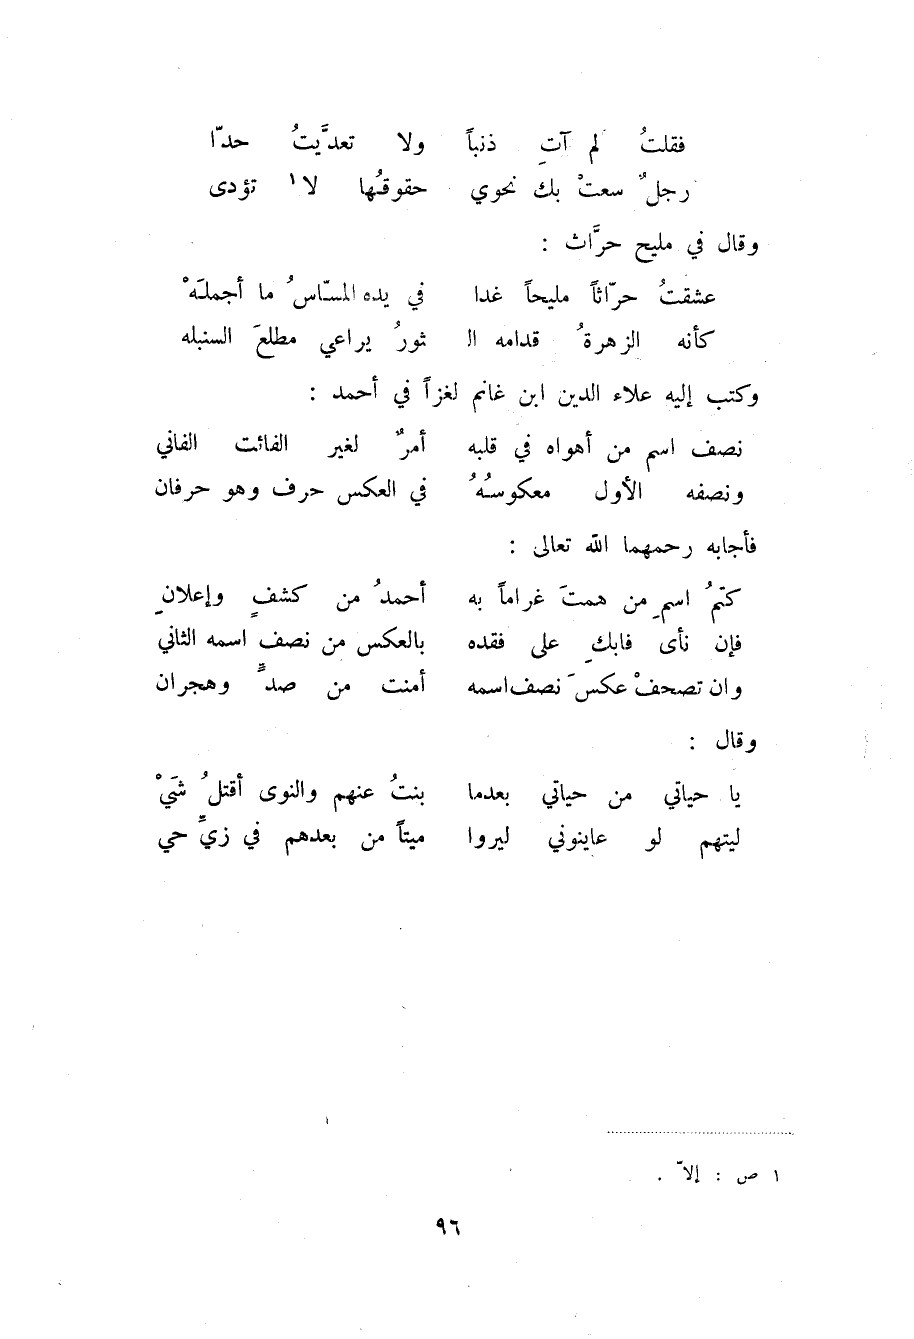 فقلتُ لم آتِ ذنباً ولا تعدَّيتُ حدّا
رجلٌ سعتْ بك نحوي حقوقُها لا١ تؤدى
وقال في مليح حرَّاث :
عشقتُ حرّاثاً مليحاً غدا في يده المسّاسُ ما أجملَهْ
كأنه الزهرةُ قدامه الـ ثورُ يراعي مطلعَ السنبله
وكتب إليه علاء الدين ابن غانم لغزاً في أحمد :
نصف اسم من أهواه في قلبه أمرٌ لغير الفائت الفاني
ونصفه الأول معكوسُهُ في العكس حرف وهو حرفان
فأجابه رحمهما الله تعالى :
كتمُ اسمِ من همتَ غراماً به أحمدُ من كشفٍ وإعلانِ
فإن نأى فابكِ على فقده بالعكس من نصف اسمه الثاني
وان تصحفْ عكسَ نصف اسمه أمنت من صدٍّ وهجران
وقال :
يا حياتي من حياتي بعدما بنتُ عنهم والنوى أقتلُ شَيْ
ليتهم لو عاينوني ليروا ميتاً من بعدهم في زيِّ حي
١ ص : إلاّ .
٩٦